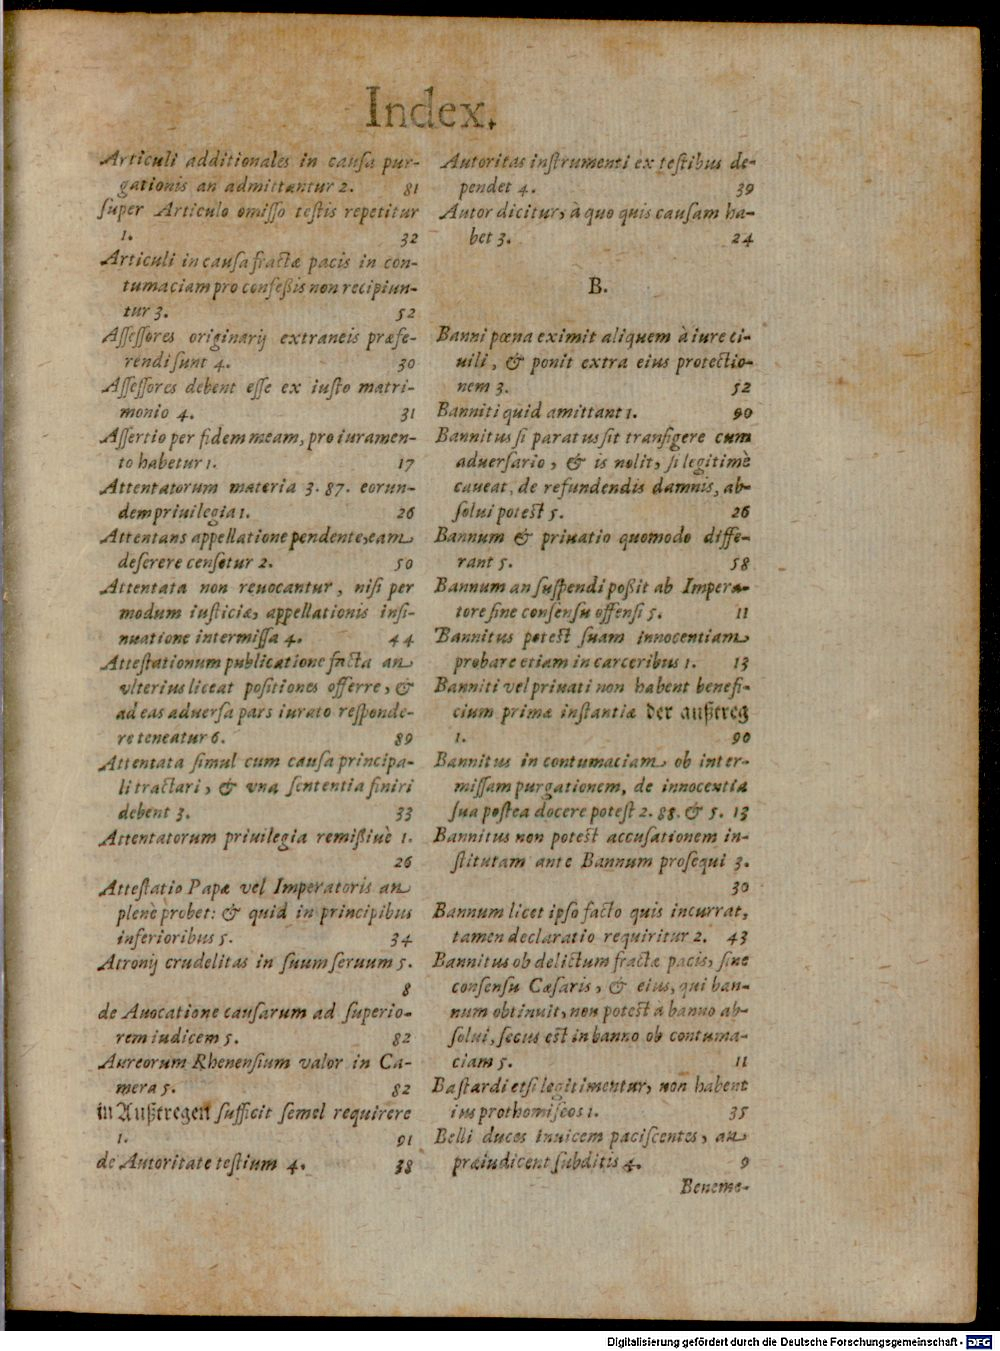 Index.
Articuli additionales in cauſa pur-
gationis an admittantur 2. 81
ſuper Articulo omiſſo teſtis repetitur
1. 32
Articuli in cauſa fractæ pacis in con-
tumaciam pro confeßis non recipiun-
tur 3. 52
Aſſeſſores originarij extraneis præfe-
rendi ſunt 4. 30
Aſſeſſores debent eſſe ex iuſto matri-
monio 4. 31
Aſſertio per fidem meam, pro iuramen-
to habetur 1. 17
Attentatorum materia 3. 87. eorun-
dem priuilegia 1. 26
Attentans appellatione pendente, eam
deſerere cenſetur 2. 50
Attentata non reuocantur, niſi per
modum iuſticiæ, appellationis inſi-
nuatione intermiſſa 4. 44
Atteſtationum publicatione facta an
vlterius liceat poſitiones offerre, &
ad eas aduerſa pars iurato reſponde-
re teneatur 6. 89
Attentata ſimul cum cauſa principa-
li tractari, & vna ſententia finiri
debent 3. 33
Attentatorum priuilegia remißiuè 1.
26
Atteſtatio Papæ vel Imperatoris an
plenè probet: & quid in principibus
inferioribus 5. 34
Atronij crudelitas in ſuum ſeruum 5.
8
de Auocatione cauſarum ad ſuperio-
rem iudicem 5. 82
Aureorum Rhenenſium valor in Ca-
mera 5. 82
in Außtregen ſufficit ſemel requirere
1. 91
de Autoritate teſtium 4. 38
Autoritas inſtrumenti ex teſtibus de-
pendet 4. 39
Autor dicitur, à quo quis cauſam ha-
bet 3. 24
B.
Banni pœna eximit aliquem à iure ci-
uili, & ponit extra eius protectio-
nem 3. 52
Banniti quid amittant 1. 90
Bannitus ſi paratus ſit tranſigere cum
aduerſario, & is nolit, ſi legitimè
caueat, de refundendis damnis, ab-
ſolui poteſt 5. 26
Bannum & priuatio quomodo diffe-
rant 5. 58
Bannum an ſuſpendi poßit ab Impera-
tore ſine conſenſu offenſi 5. 11
Bannitus poteſt ſuam innocentiam
probare etiam in carceribus 1. 13
Banniti vel priuati non habent benefi-
cium primæ inſtantiæ der außtreg
1. 90
Bannitus in contumaciam ob inter-
miſſam purgationem, de innocentia
ſua poſtea docere poteſt 2. 88. & 5. 13
Bannitus non poteſt accuſationem in-
ſtitutam ante Bannum proſequi 3.
30
Bannum licet ipſo facto quis incurrat,
tamen declaratio requiritur 2. 43
Bannitus ob delictum fractæ pacis, ſine
conſenſu Cæſaris, & eius, qui ban-
num obtinuit, non poteſt à banno ab-
ſolui, ſecus eſt in banno ob contuma-
ciam 5. 11
Baſtardi etſi legitimentur, non habent
ius prothomiſeos 1. 35
Belli duces inuicem paciſcentes, an
præiudicent ſubditis 4. 9
Beneme-
Digitalisierung gefördert durch die Deutsche Forschungsgemeinschaft - DFG